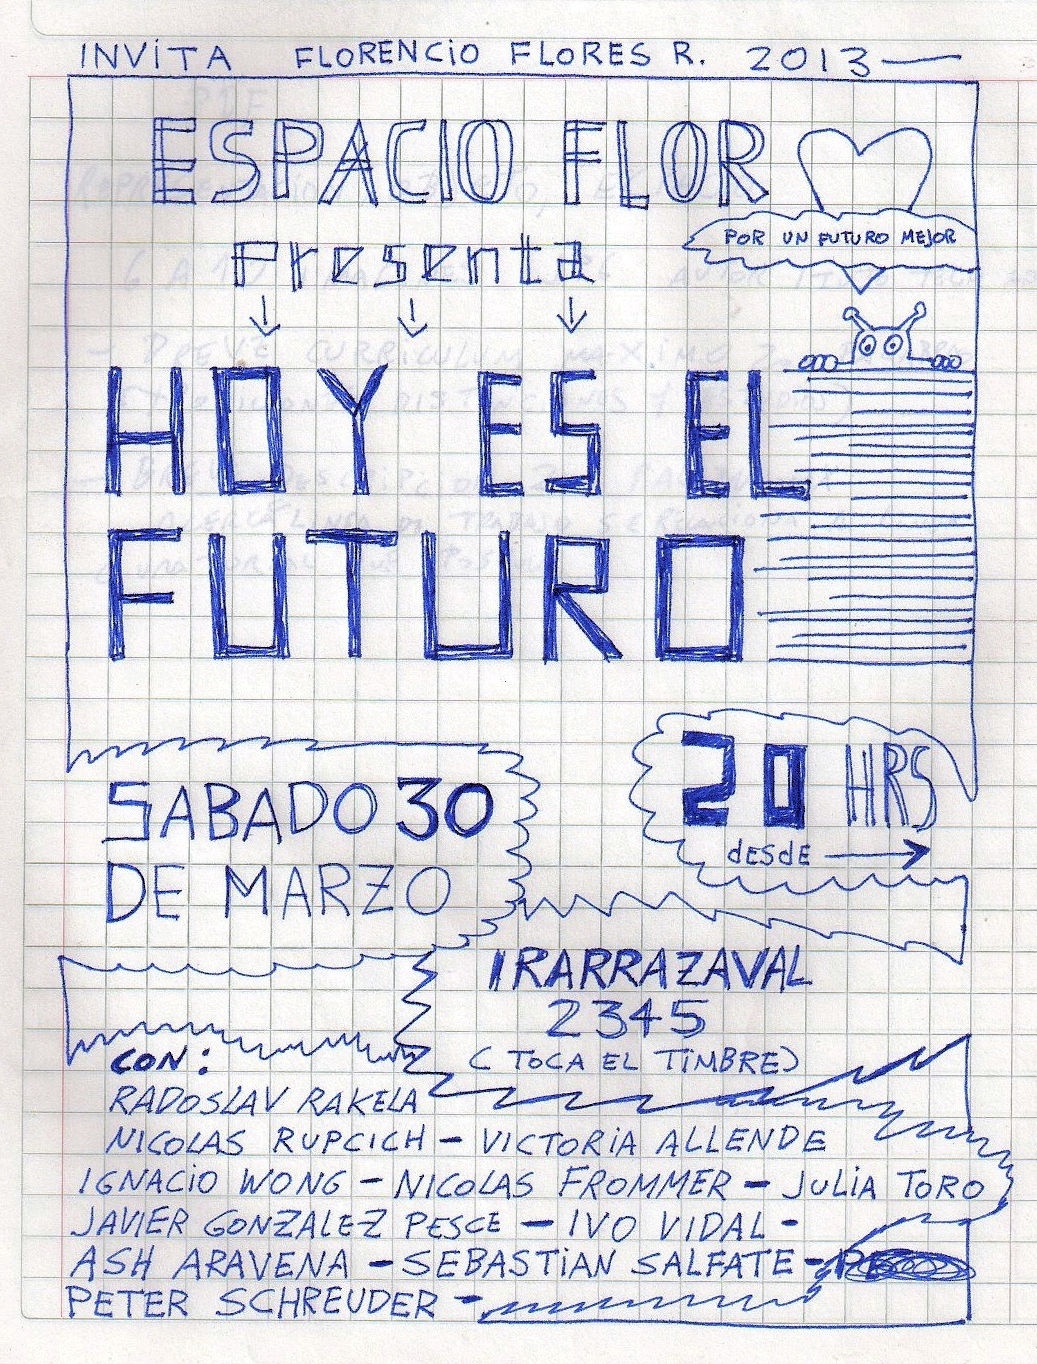 INVITA FLORENCIO FLORES R. 2013
ESPACIO FLOR
POR UN FUTURO MEJOR
Presenta
HOY ES EL
FUTURO
SABADO 30
DE MARZO
20 HRS
desde
IRARRAZAVAL
2345
(TOCA EL TIMBRE)
CON:
RADOSLAV RAKELA
NICOLAS RUPCICH - VICTORIA ALLENDE
IGNACIO WONG - NICOLAS FROMMER - JULIA TORO
JAVIER GONZALEZ PESCE - IVO VIDAL -
ASH ARAVENA - SEBASTIAN SALFATE -
PETER SCHREUDER -